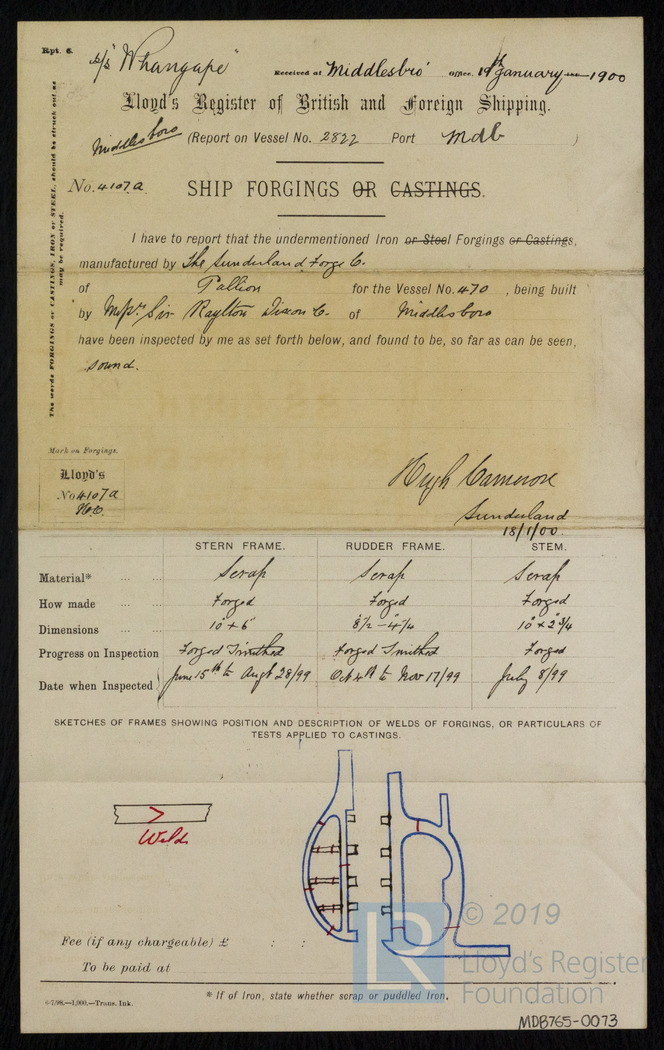 Rpt. 6.
s/s "Whangape"
Received at Middlesbro' Office, 19th January 1900
Lloyd's Register of British and Foreign Shipping.
Middlesboro (Report on Vessel No. 2822 Port Mdb )
No. 4107a SHIP FORGINGS OR CASTINGS.
The words FORGINGS or CASTINGS, IRON or STEEL, should be struck out as may be required.
I have to report that the undermentioned Iron or Steel Forgings or Castings,
manufactured by The Sunderland Forge Co.
of Pallion for the Vessel No. 470, being built
by Messrs. Sir Raylton Dixon Co. of Middlesboro
have been inspected by me as set forth below, and found to be, so far as can be seen,
sound.
Mark on Forgings.
Lloyd's
No 4107a
H.C.
Hugh Cameron
Sunderland
18/1/00.
STERN FRAME. RUDDER FRAME. STEM.
Material* ... ... Scrap Scrap Scrap
How made ... ... Forged Forged Forged
Dimensions ... ... 10" × 6" 8½ - 4¼ 10" × 2¾"
Progress on Inspection Forged Smithed Forged Smithed Forged
Date when Inspected June 15th to Augt 28/99 Oct 4th to Nov 17/99 July 8/99
SKETCHES OF FRAMES SHOWING POSITION AND DESCRIPTION OF WELDS OF FORGINGS, OR PARTICULARS OF
TESTS APPLIED TO CASTINGS.
Welds
Fee (if any chargeable) £ : :
To be paid at
* If of Iron, state whether scrap or puddled Iron.
6/7/98.—1,000.—Trans. Ink.
LR
© 2019
Lloyd's Register
Foundation
MDB765-0073